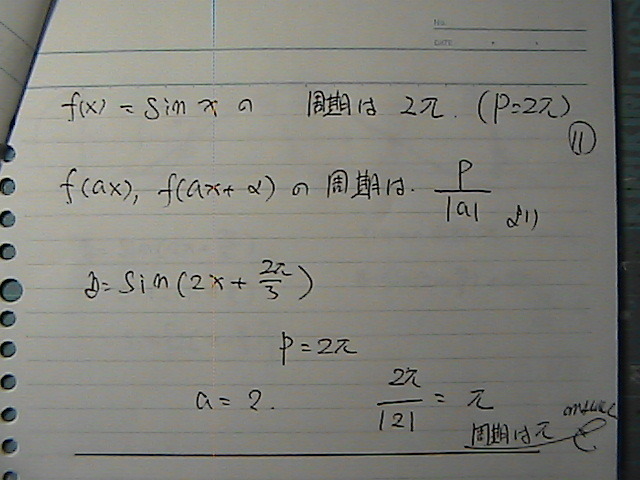 No.
DATE
f(x) = sin x の 周期は 2π. (P=2π)
⑪
f(ax), f(ax+α) の 周期は. P/|a| より
y= sin(2x + 2π/3)
P=2π
a = 2. 2π/|2| = π
周期はπ answer